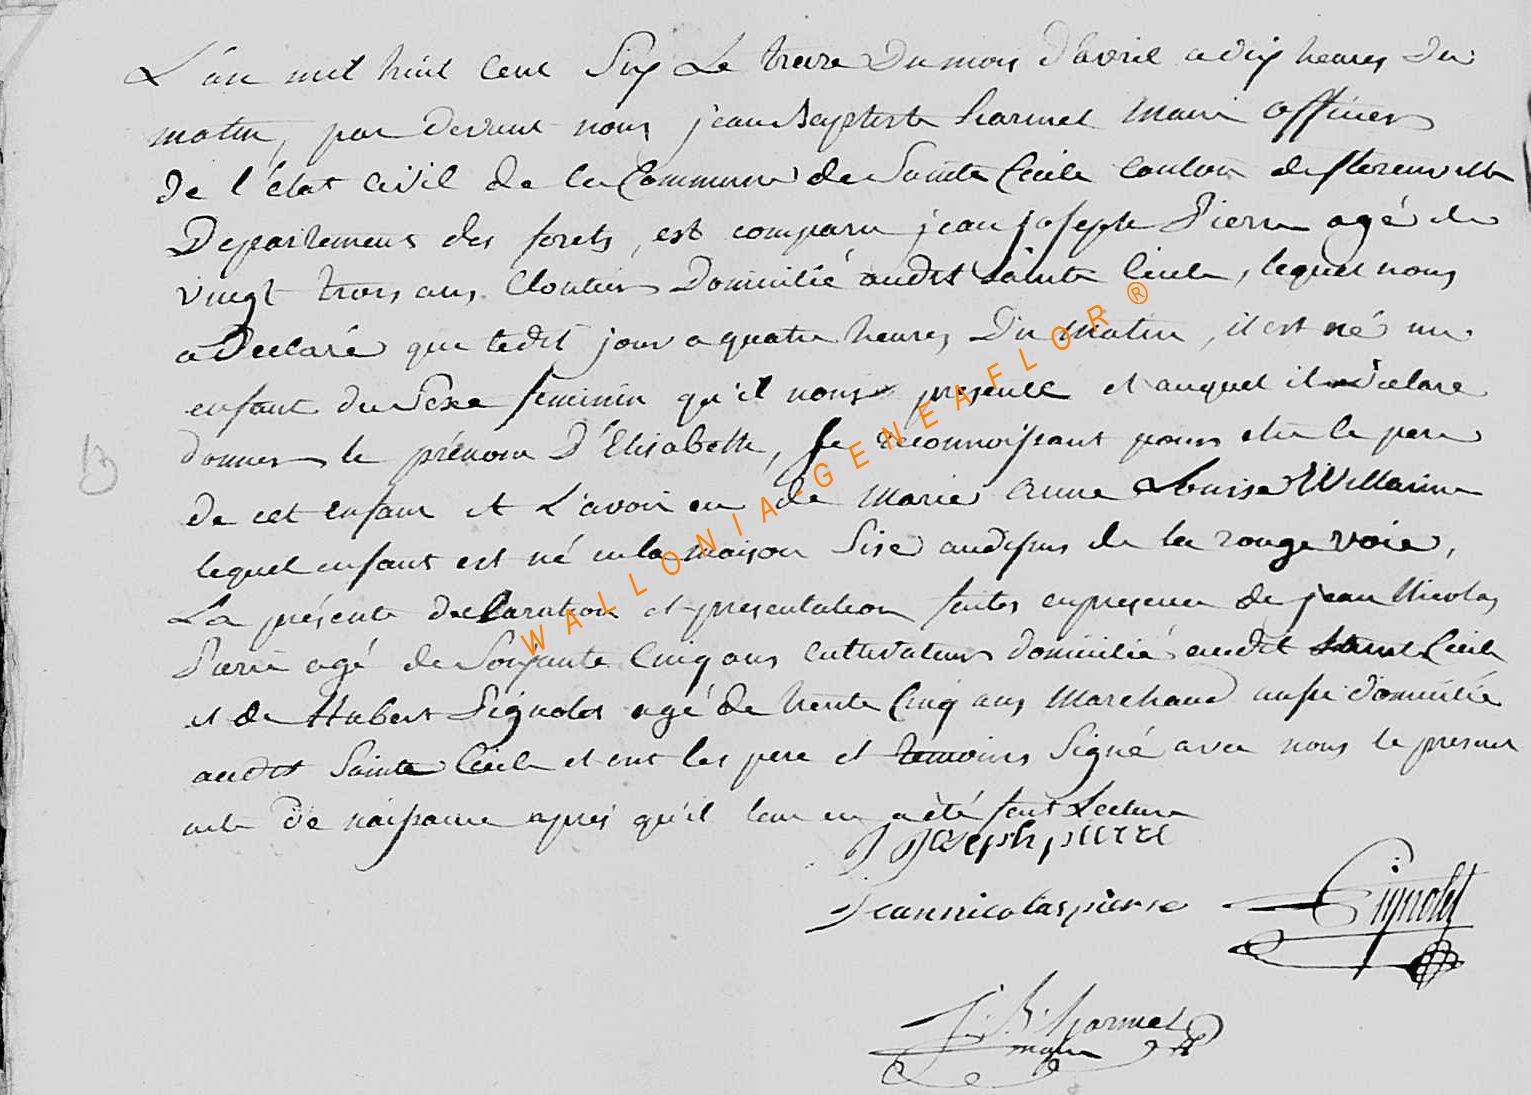 L'an mil huit cent Six Le treize Du mois d'avril a dix heures Du
matin, par devant nous jean Baptiste Harmel Maire officier
De l'état Civil de la Commune de Sainte Cécile Canton de florenville
Departement des forets, est comparu jean joseph Pierre agé de
vingt trois ans Cloutier Domicilié audit Sainte Cecile, lequel nous
a Declaré que ledit jour a quatre heures Du Matin, il est né un
enfant du Sexe feminin qu'il nous presente et auquel il declare
donner le prénom D'Elisabeth, Se reconnoissant pour etre le pere
de cet enfant et L'avoir eu de Marie anne Louise Willaime
lequel enfant est né en la maison Sise audessus de la rouge voie,
La présente declaration et presentation faites en presence de jean Nicolas
Pierre agé de Soixante Cinq ans Cultivateur domicilié audit Sainte Cecile
et de Hubert Pignolet agé de trente Cinq ans Marchand aussi domicilié
audit Sainte Cecile et ont les pere et temoins Signé avec nous le present
acte De naissance après qu'il leur en a été fait Lecture
J Joseph pierre
Jean nicolas pierre Pignolet
J. B. Harmel
maire
13
WALLONIA-GENEAFLOR ®